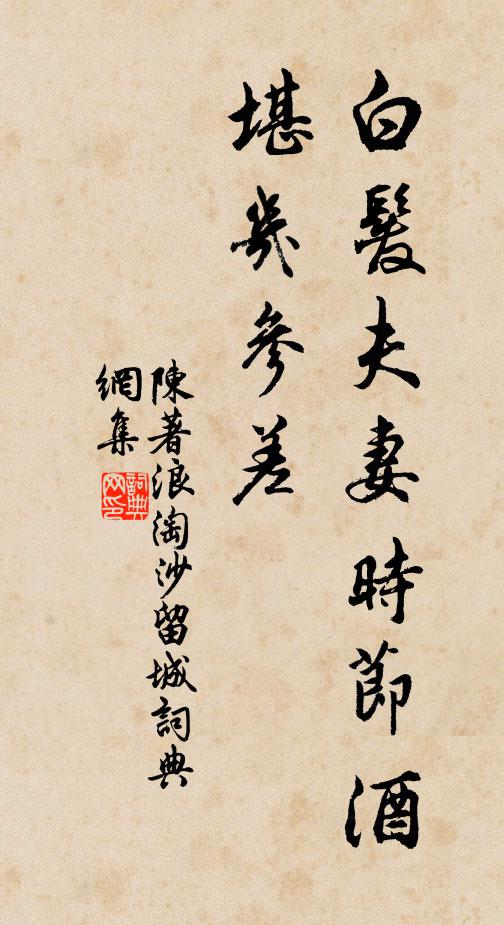 白髮夫妻時節酒
堪幾參差
陳著浪淘沙留城詞典
網集
詞典網印